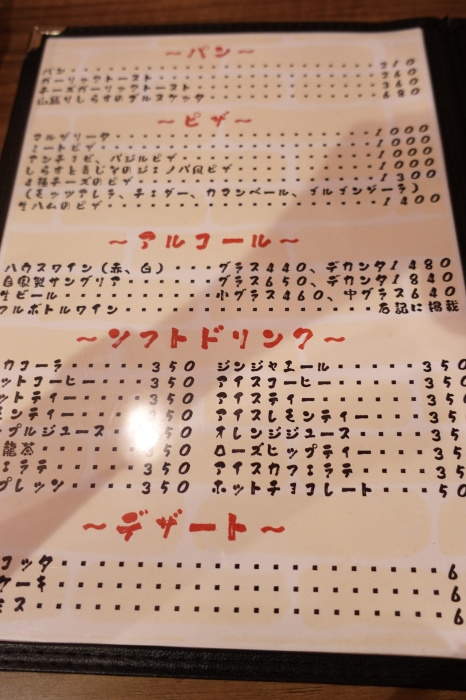 ～パン～
パン・・・・・・・・・・・・・・・210
ガーリックトースト・・・・・・・・・260
チーズガーリックトースト・・・・・・・360
しらすのブルスケッタ・・・・・・・680
～ピザ～
マルゲリータ・・・・・・・・・・・1000
ミートピザ・・・・・・・・・・・・1000
アンチョビ、バジルピザ・・・・・・・1000
しらすとあじなのジェノバ風ピザ・・・・1000
4種チーズのピザ・・・・・・・・・・1300
(モッツアレラ、チェダー、カマンベール、ゴルゴンゾーラ)
生ハムのピザ・・・・・・・・・・・1400
～アルコール～
ハウスワイン(赤、白)・・・グラス440、デカンタ1480
自家製サングリア・・・・・グラス650、デカンタ1840
生ビール・・・・・・・・小グラス460、中グラス640
フルボトルワイン・・・・・・・・・・・・右記に掲載
～ソフトドリンク～
カコーラ・・・・・350 ジンジャエール・・・・・350
ットコーヒー・・・・350 アイスコーヒー・・・・・350
ットティー・・・・・350 アイスティー・・・・・・350
モンティー・・・・350 アイスレモンティー・・・・350
ップルジュース・・・・350 オレンジジュース・・・・・350
龍茶・・・・・・350 ローズヒップティー・・・・350
ェラテ・・・・・・350 アイスカフェラテ・・・・・350
プレッソ・・・・・350 ホットチョコレート・・・・50
～デザート～
コッタ・・・・・・・・・・・・・・・・6
ケーキ・・・・・・・・・・・・・・・・6
ミス・・・・・・・・・・・・・・・・・6